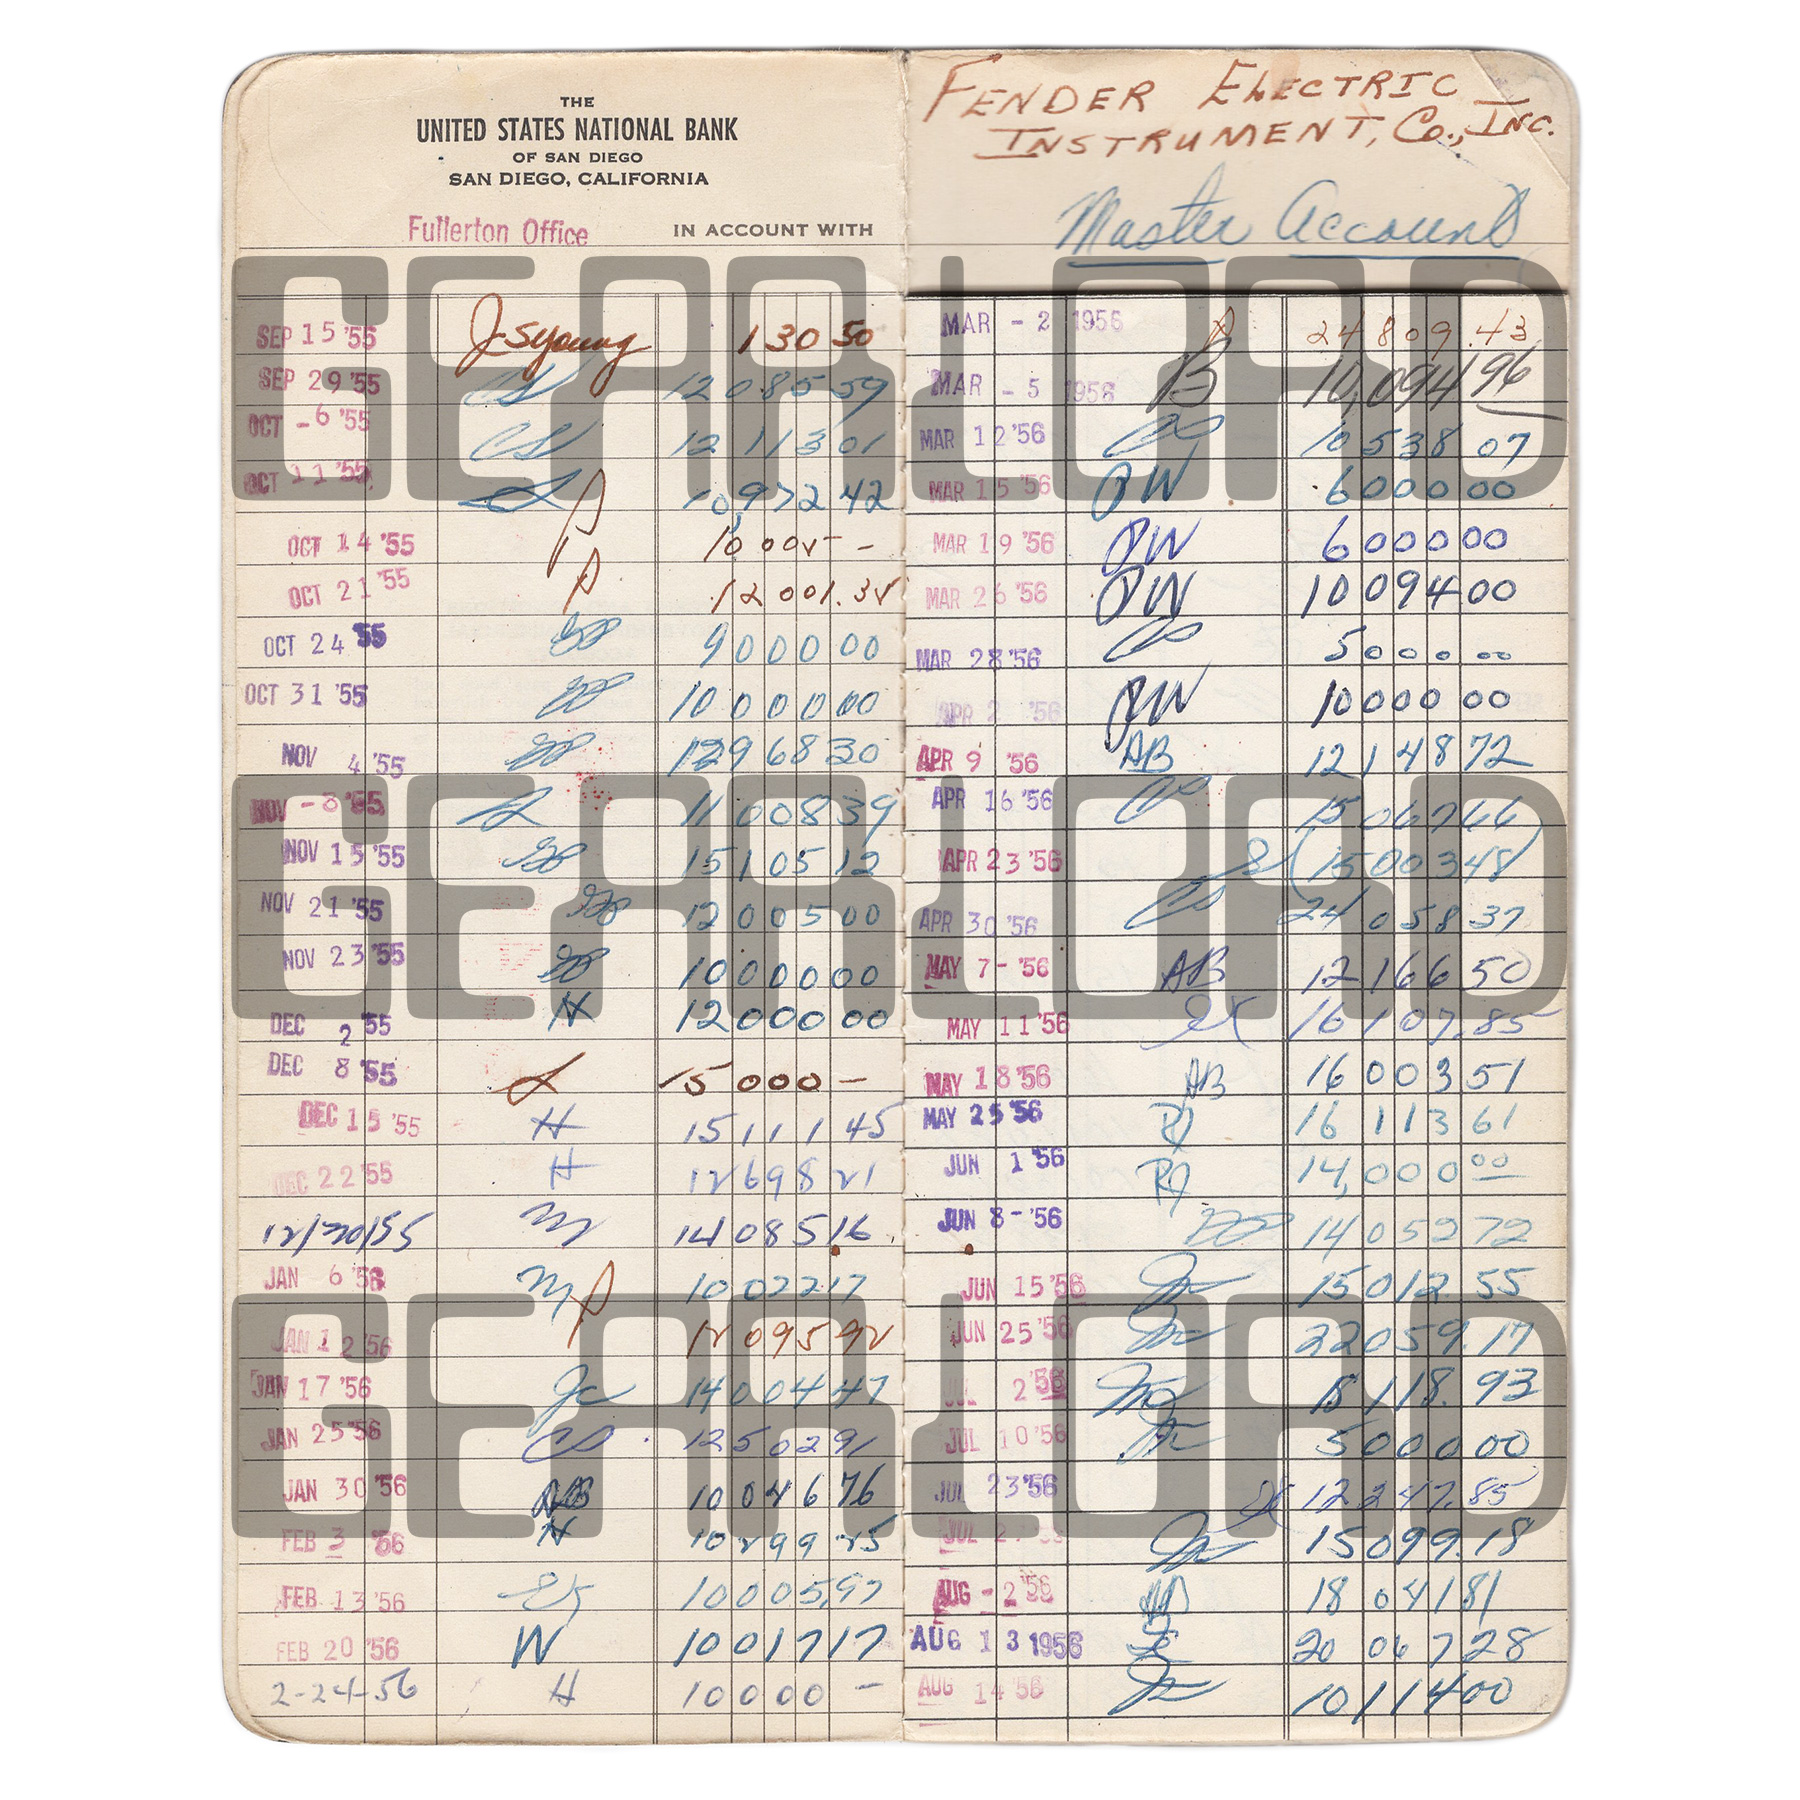 THE
UNITED STATES NATIONAL BANK
OF SAN DIEGO
SAN DIEGO, CALIFORNIA
Fullerton Office IN ACCOUNT WITH
SEP 15 '55 J-SYoung 130 50
SEP 29 '55 CS 12 085 59
OCT -6 '55 CS 12 113 01
OCT 11 '55 10,972 42
OCT 14 '55 10 005 -
OCT 21 '55 12 001.35
OCT 24 '55 9000 00
OCT 31 '55 10 000 00
NOV 4 '55 12968 30
NOV -8 '55 11 008 39
NOV 15 '55 15105 12
NOV 21 '55 12005 00
NOV 23 '55 10000 00
DEC 2 '55 H 12000 00
DEC 8 '55 15 000 -
DEC 15 '55 H 15111 45
DEC 22 '55 H 12698 21
12/30/55 M 14085 16
JAN 6 '56 M 10022 17
JAN 12 '56 12095 92
JAN 17 '56 Jc 14004 47
JAN 25 '56 CS 12502 91
JAN 30 '56 10046 76
FEB 3 '56 H 10299 25
FEB 13 '56 10005,97
FEB 20 '56 W 10017 17
2-24-56 H 10000 -
FENDER ELECTRIC
INSTRUMENT, Co., INC.
Master Account
MAR - 2 1956 24 809.43
MAR - 5 1956 B 10,094 96
MAR 12 '56 10 538 07
MAR 15 '56 PW 6000 00
MAR 19 '56 PW 6000 00
MAR 26 '56 PW 10094 00
MAR 28 '56 5000 00
APR 2 '56 PW 10000 00
APR 9 '56 AB 12148 72
APR 16 '56 15067 66
APR 23 '56 15003 48
APR 30 '56 24 058 37
MAY 7- '56 AB 12166 50
MAY 11 '56 16107.85
MAY 18 '56 AB 16003 51
MAY 25 '56 RJ 16 113 61
JUN 1 '56 RJ 14,000 00
JUN 8- '56 14052 72
JUN 15 '56 15012.55
JUN 25 '56 22059.17
JUL 2 '56 18118.93
JUL 10 '56 5000 00
JUL 23 '56 12247.85
JUL 15099.18
AUG - 2 '56 18 041 81
AUG 13 1956 20 067 28
AUG 14 '56 10114 00
GEARLOAD
GEARLOAD
GEARLOAD